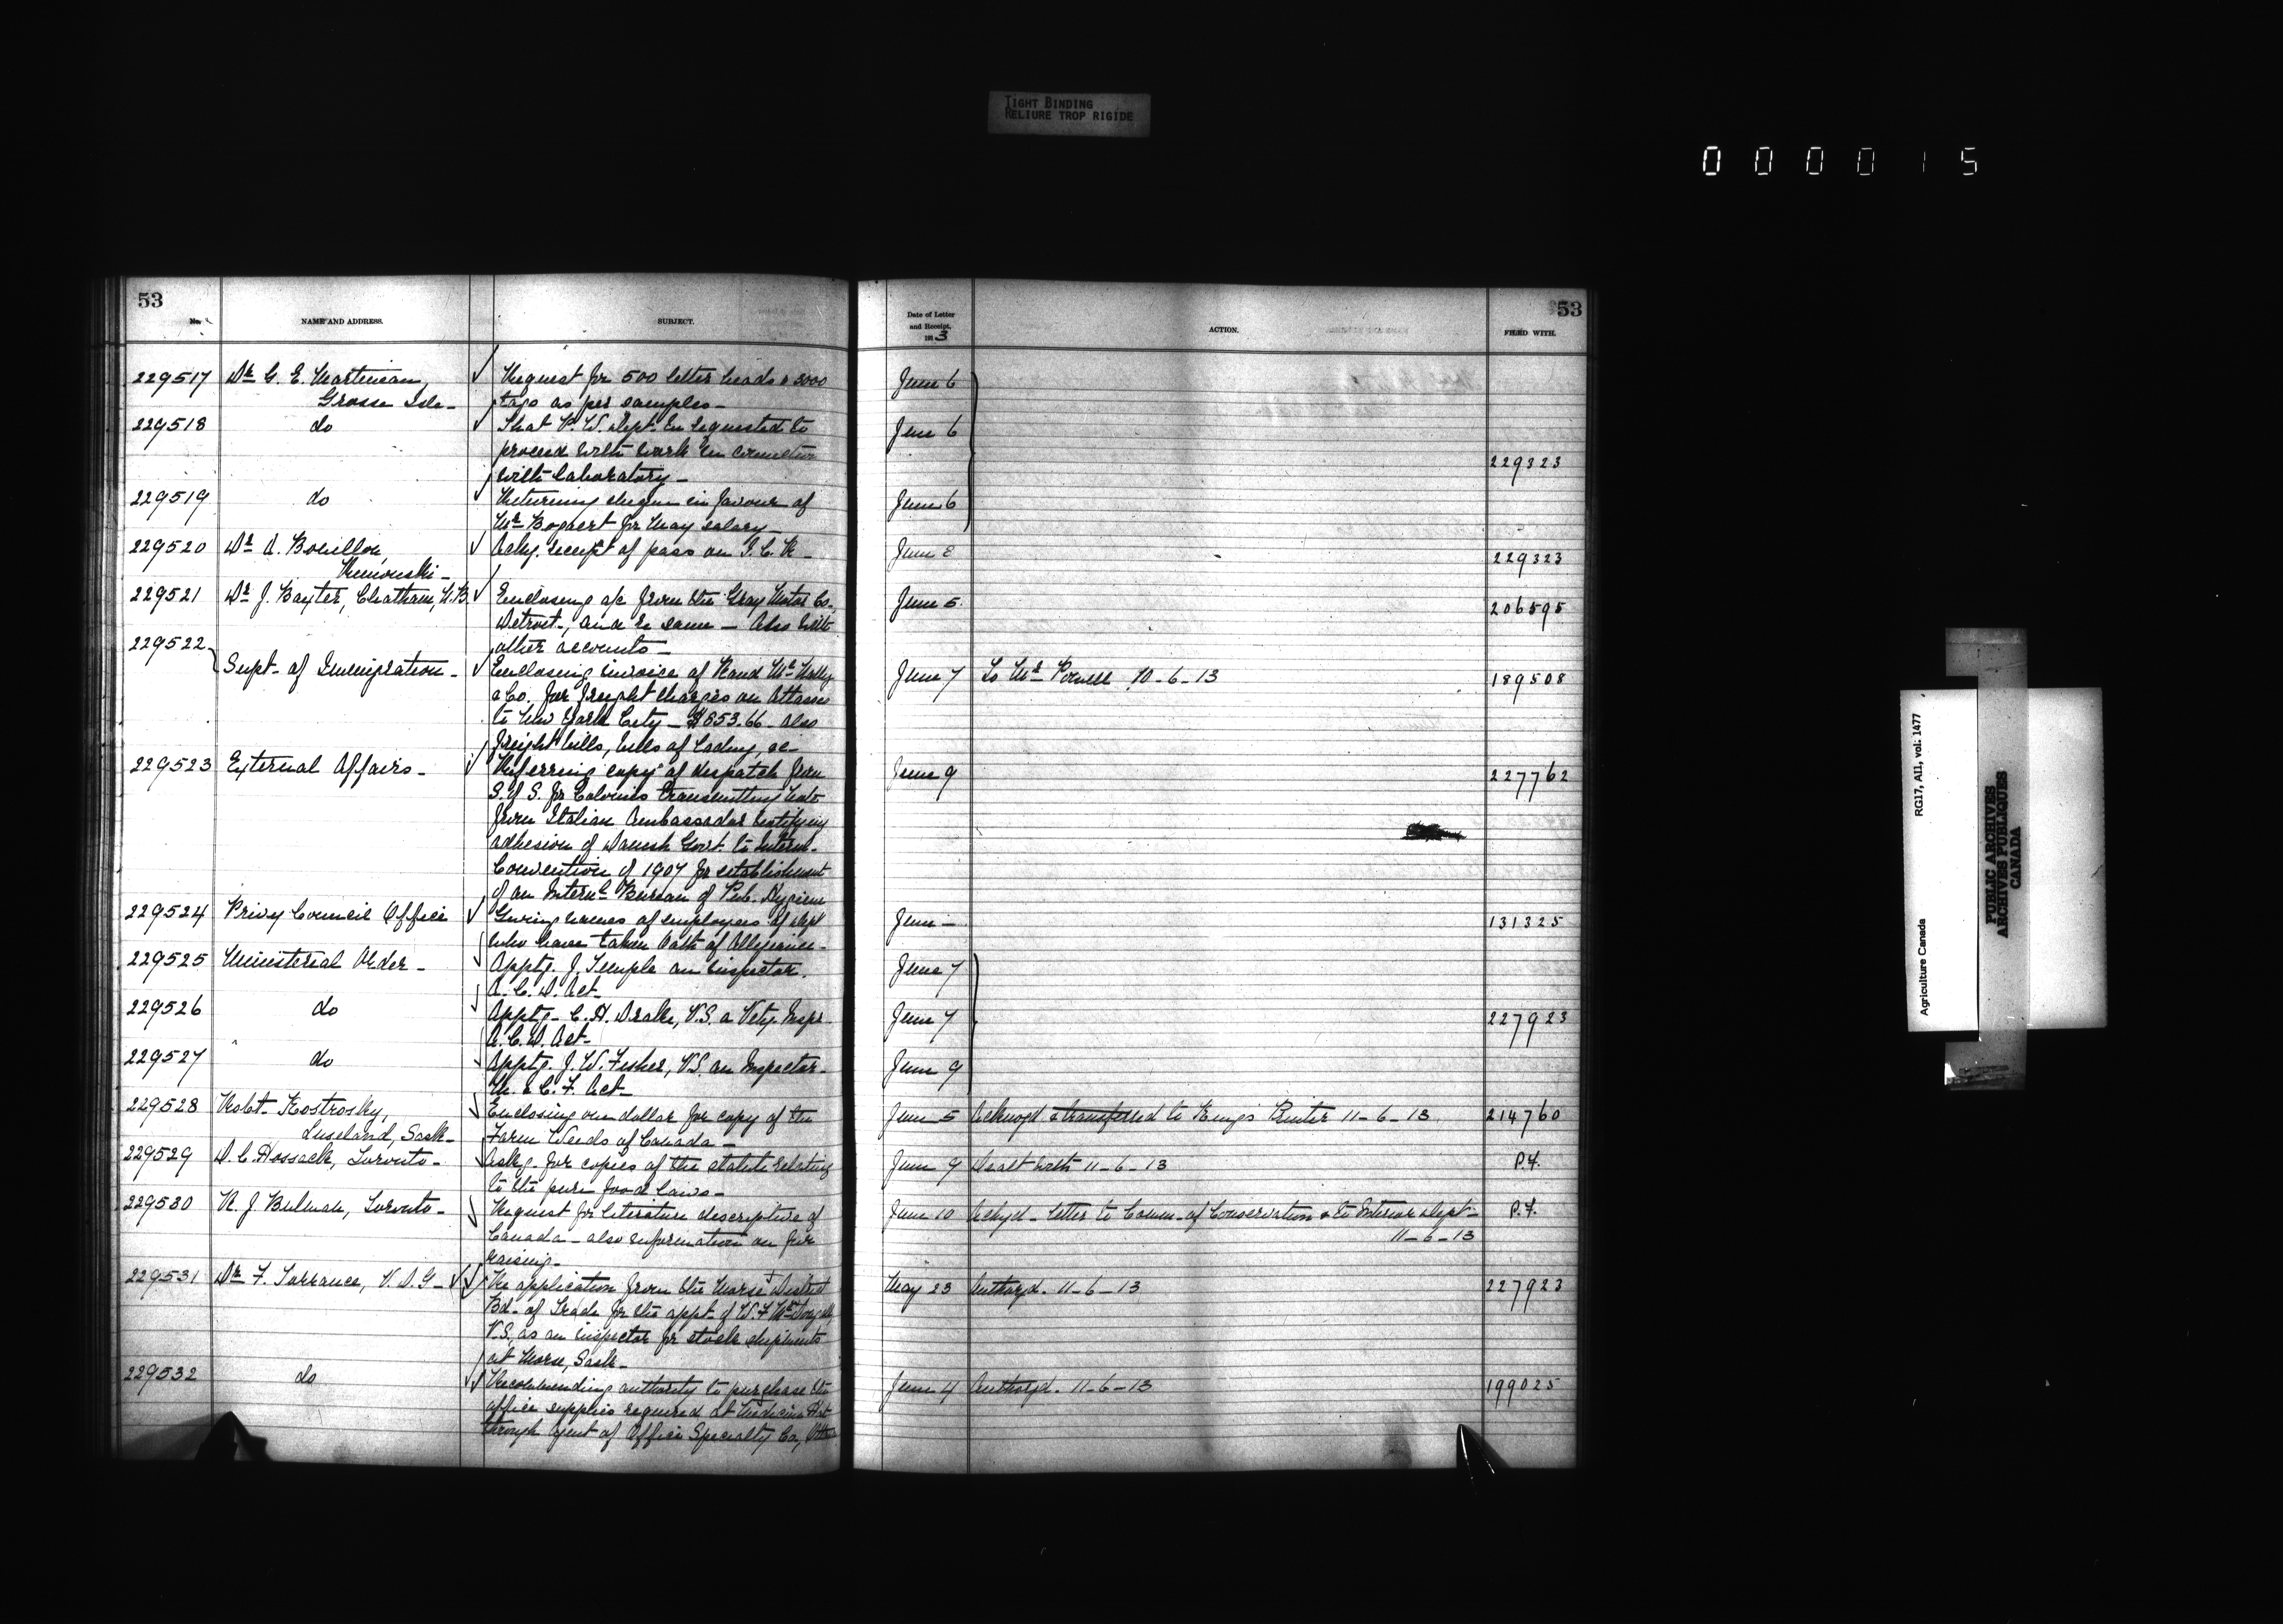 TIGHT BINDING
RELIURE TROP RIGIDE
000015
53
No.
NAME AND ADDRESS.
SUBJECT.
229517 Dr G. E. Martineau, Request for 500 letter heads & 3000
Grosse Isle - tags as per samples -
229518 do That P. W. Dept. be requested to
proceed with work in connection
with laboratory -
229519 do Returning cheque in favour of
Mr Bogaert for May salary -
229520 Dr A. Bouillon, Ackg. receipt of pass on I. C. R -
Rimouski -
229521 Dr J. Baxter, Chatham, N.B. Enclosing a/c from the Gray Motor Co.
Detroit, and re same - Also with
229522 other accounts -
Supt. of Immigration - Enclosing invoice of Rand McNally
& Co. for freight charges on Atlases
to New York City - $853.66. Also
freight bills, bills of lading, &c -
229523 External Affairs - Referring copy of despatch from
S. of S. for Colonies transmitting note
from Italian Ambassador notifying
adhesion of Danish Govt. to Intern.
Convention of 1907 for establishment
of an Internl Bureau of Pub. Hygiene
229524 Privy Council Office Giving names of employees of Dept
who have taken Oath of Allegiance -
229525 Ministerial Order - Apptg. J. Temple an inspector.
A. C. D. Act -
229526 do Apptg. C. H. Drake, V.S. a Vety. Inspr
A. C. D. Act -
229527 do Apptg. J. W. Fisher, V.S. an Inspector
M. & C. F. Act -
229528 Robt. Kostrosky, Enclosing one dollar for copy of the
Luseland, Sask - Farm Weeds of Canada -
229529 D. C. Hossack, Toronto - Askg. for copies of the statute relating
to the pure food laws -
229530 R. J. Toronto - Request for literature descriptive of
Canada - also information on fur
raising -
229531 Dr F. Torrance, V. D. G - Re application from the Morse District
Bd. of Trade for the appt. of W. F. McDougall,
V.S., as an inspector for stock shipments
at Morse, Sask -
229532 do Recommending authority to purchase the
office supplies required at Medicine Hat
through Agent of Office Specialty Co,
53
Date of Letter
and Receipt,
1913
ACTION.
FILED WITH.
June 6
June 6
229323
June 6
June 8 229323
June 5. 206595
June 7 To Mr Powell 10-6-13 189508
June 9 227762
June - 131325
June 7
June 7 227923
June 9
June 5 Acknogd & transferred to King's Printer 11-6-13 214760
June 9 Dealt with 11-6-13 P.F.
June 10 Ackgd - letter to Comm. of Conservation & to Interior Dept -
11-6-13 P.F.
May 23 Authorzd. 11-6-13 227923
June 4 Authorzd. 11-6-13 199025
Agriculture Canada RG17, AII, vol: 1477
PUBLIC ARCHIVES
ARCHIVES PUBLIQUES
CANADA